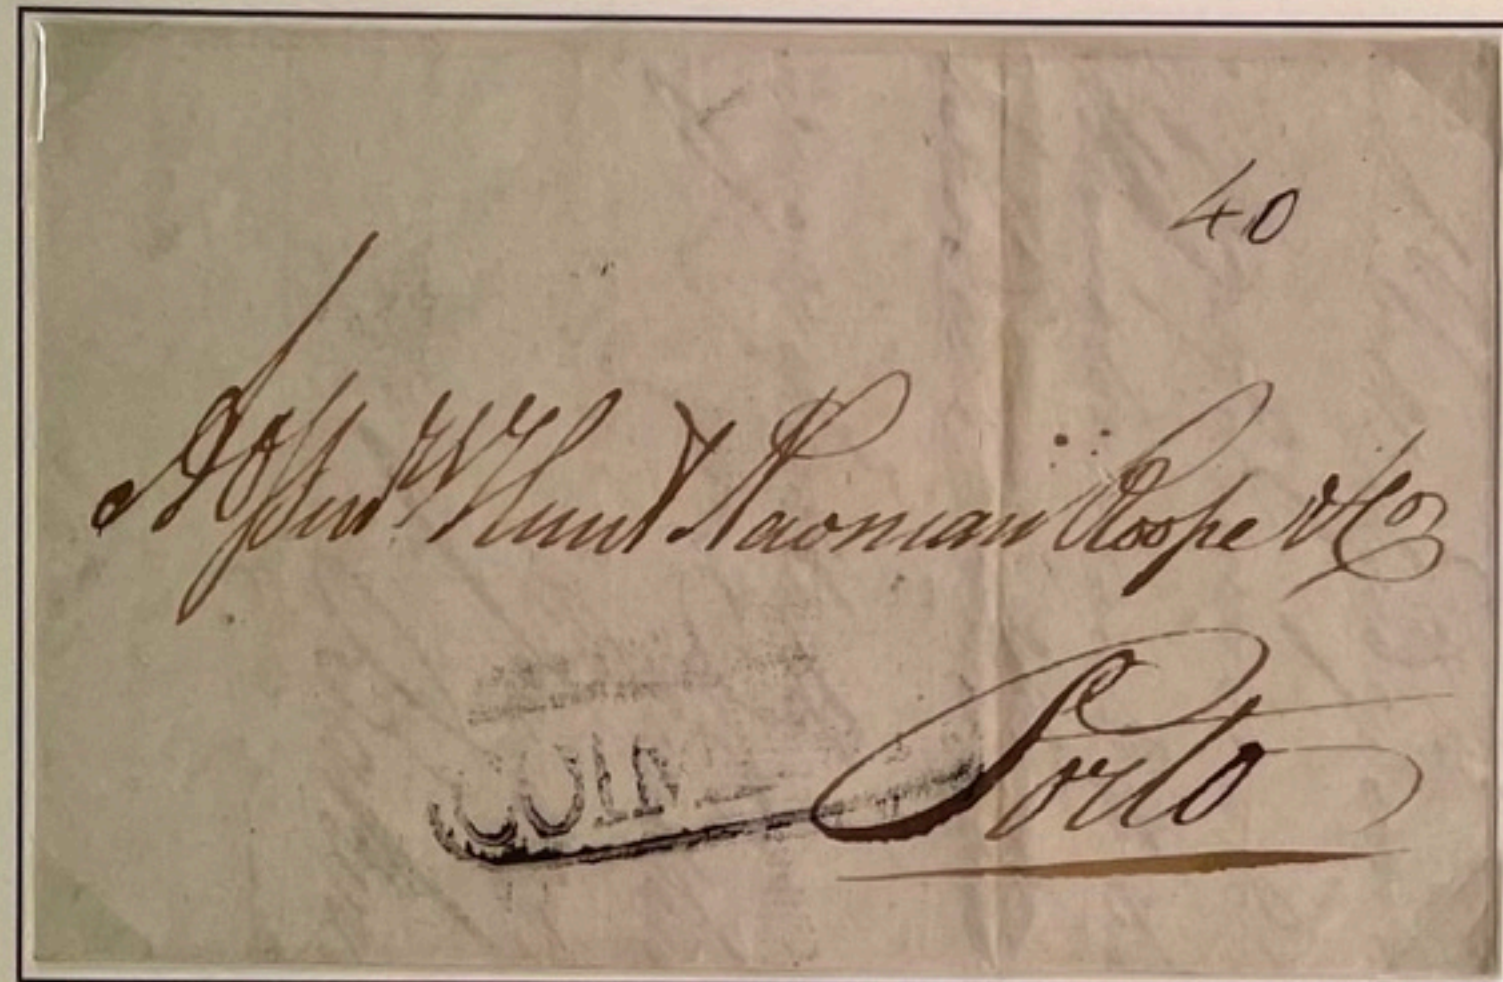 40
Hunt Newman Roope & Co
COIM
Porto